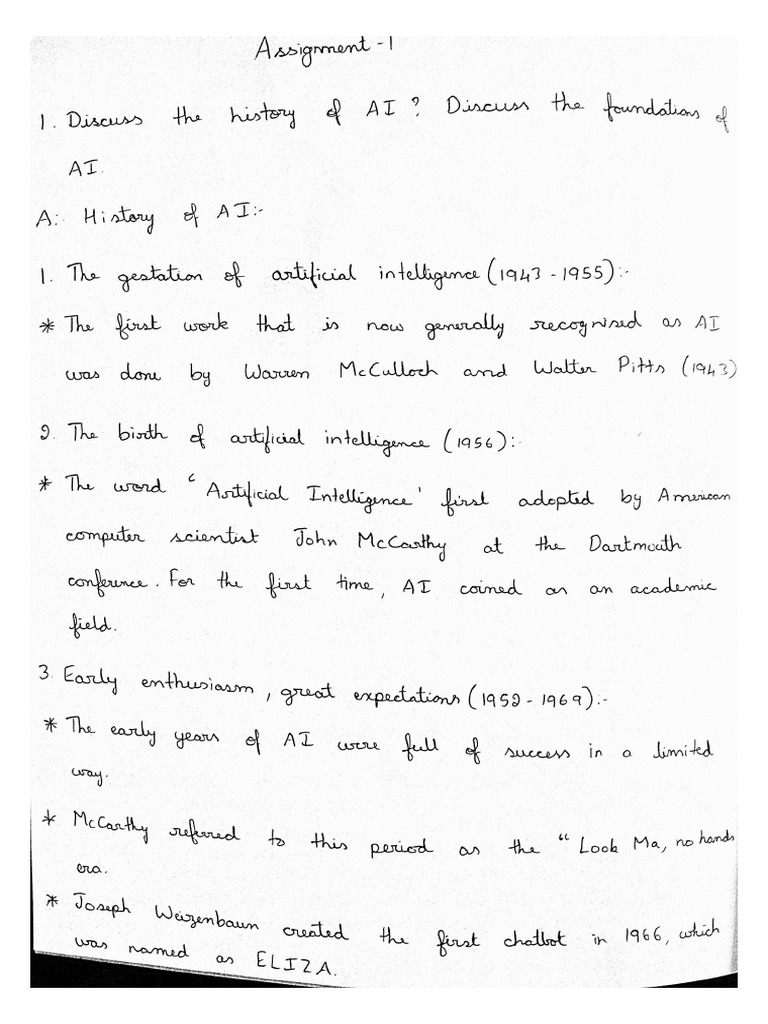 Assignment-1
1. Discuss the history of AI? Discuss the foundations of
AI.
A: History of AI:-
1. The gestation of artificial intelligence (1943-1955):-
* The first work that is now generally recognised as AI
was done by Warren McCulloch and Walter Pitts (1943)
2. The birth of artificial intelligence (1956):-
* The word 'Artificial Intelligence' first adopted by American
computer scientist John McCarthy at the Dartmouth
conference. For the first time, AI coined as an academic
field.
3. Early enthusiasm, great expectations (1952-1969):-
* The early years of AI were full of success in a limited
way.
* McCarthy referred to this period as the "Look Ma, no hands
era.
* Joseph Weizenbaun created the first chatbot in 1966, which
was named as ELIZA.